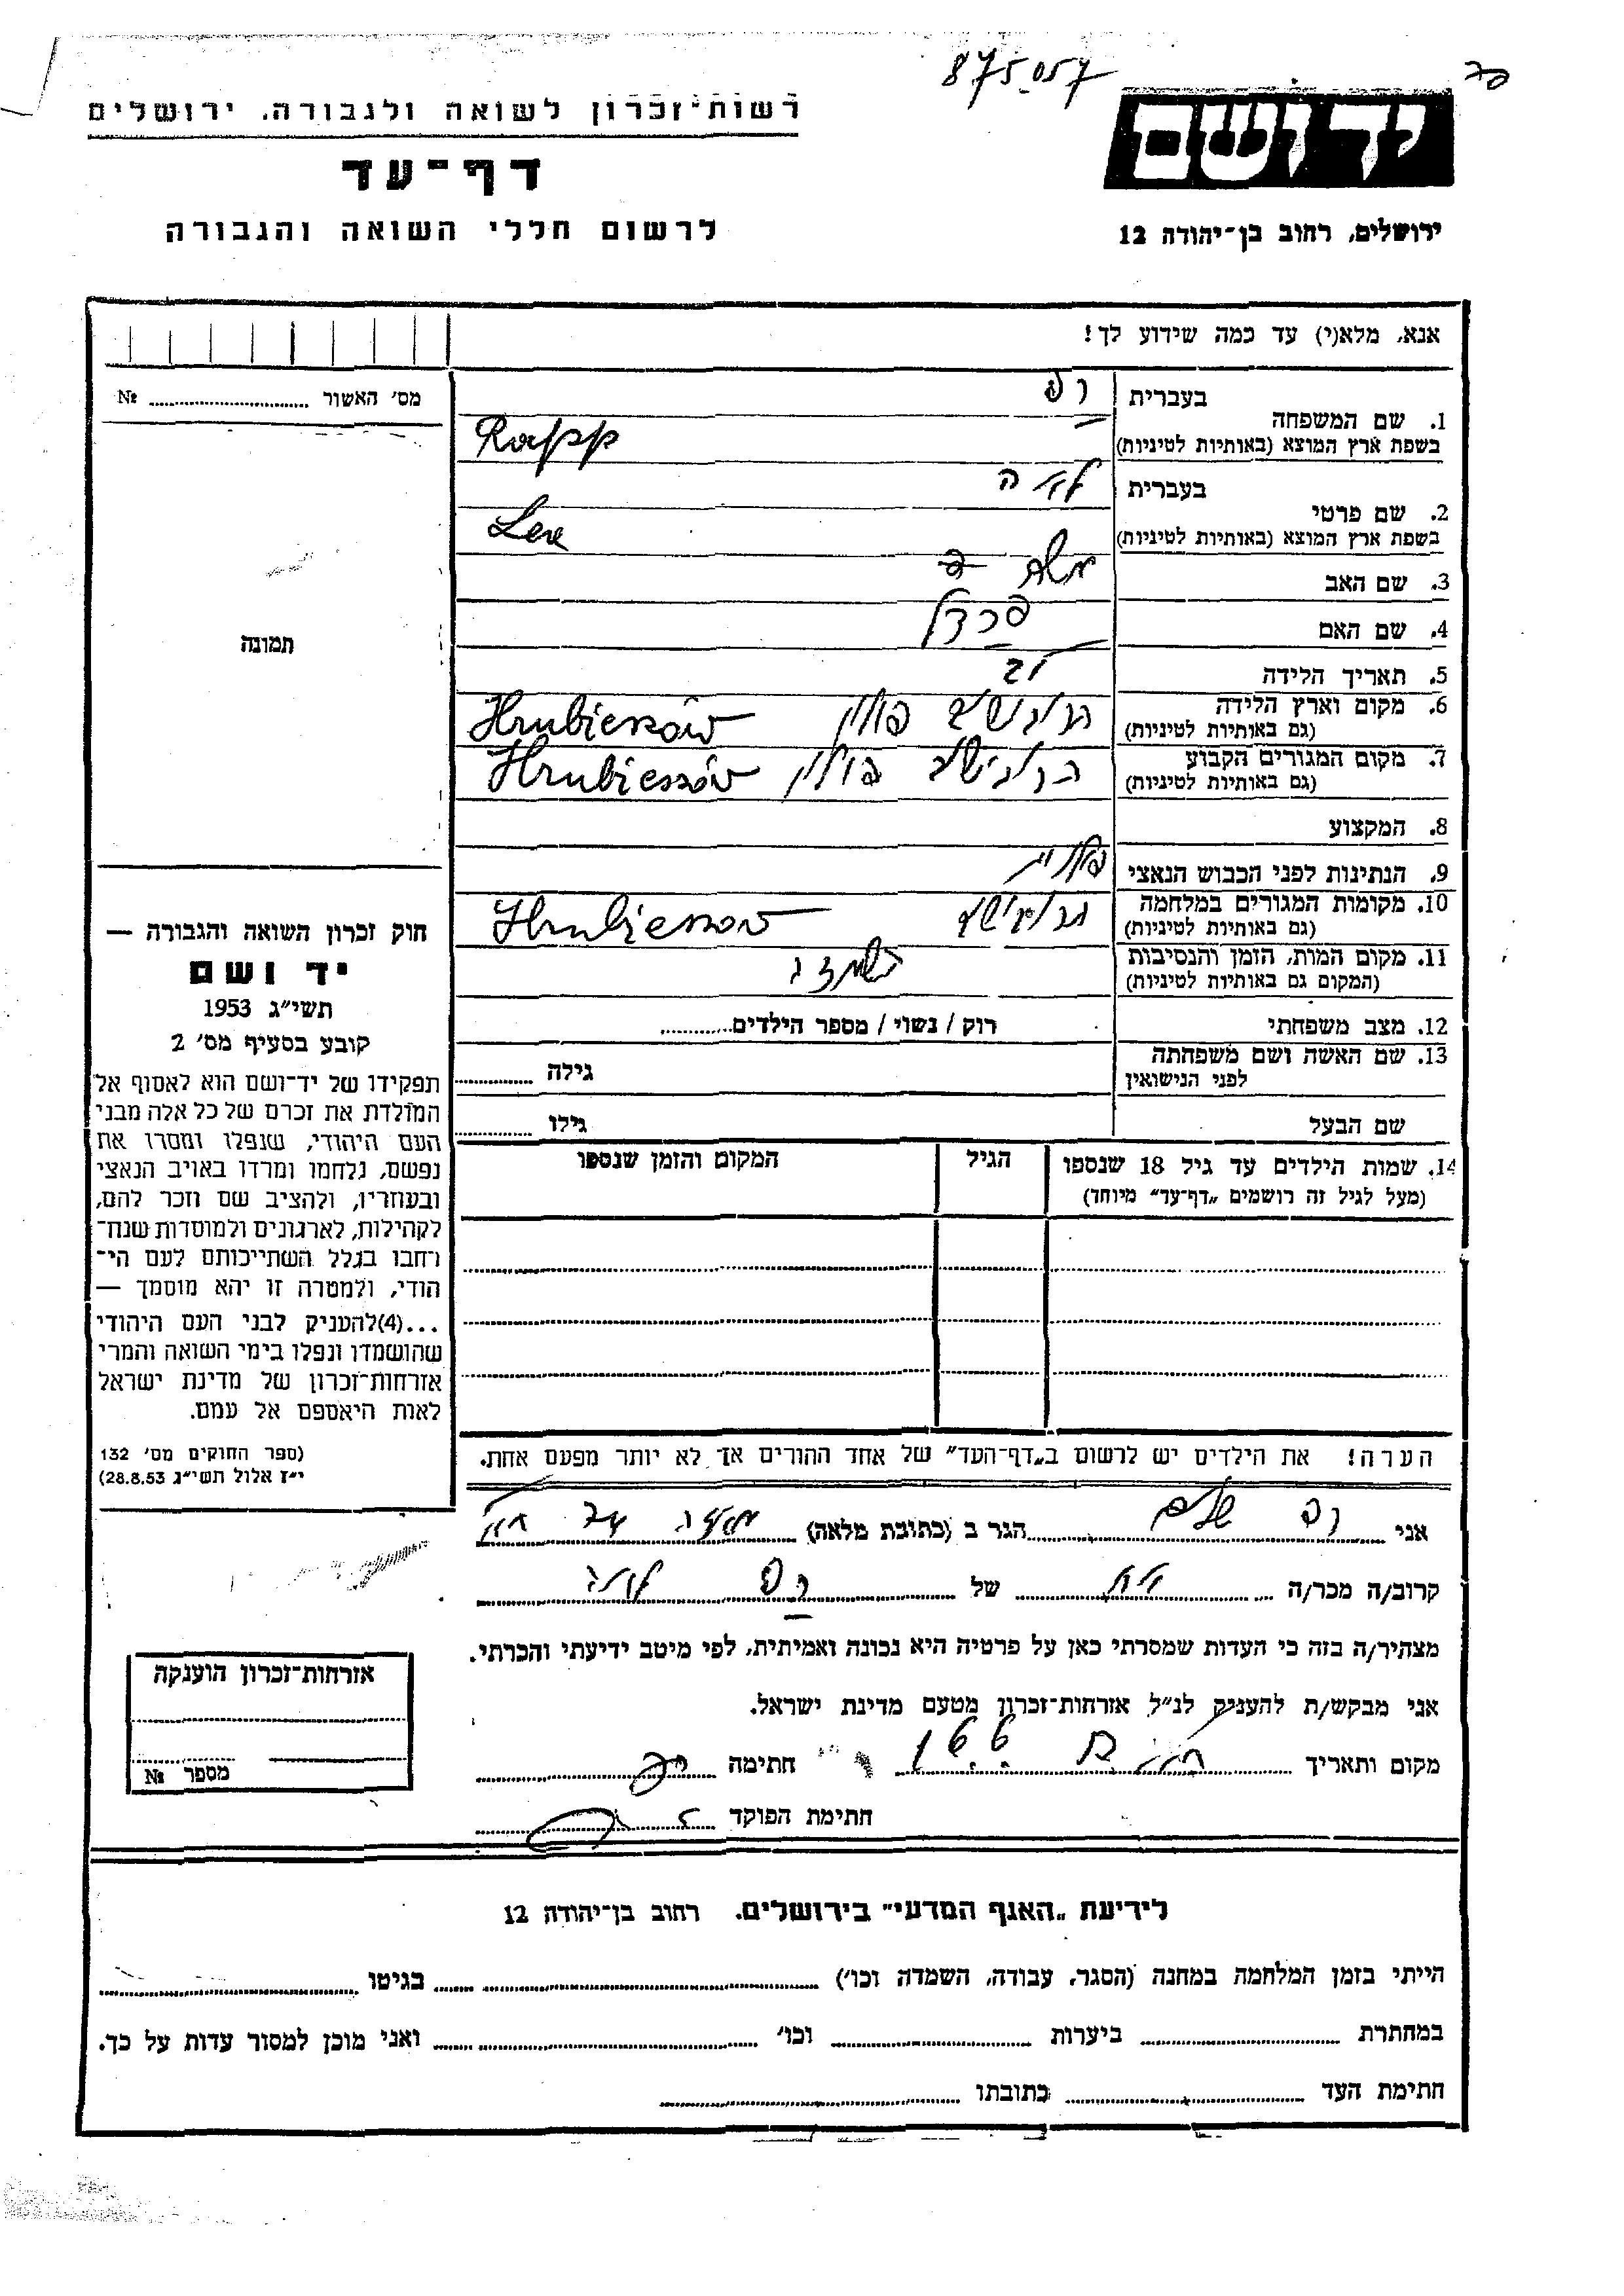 875057
יד ושם
רשות־זכרון לשואה ולגבורה, ירושלים
דף־עד
לרשום חללי השואה והגבורה
ירושלים, רחוב בן־יהודה 12
אנא, מלא(י) עד כמה שידוע לך!
מס' האשור ........ №
1. שם המשפחה
בעברית רפ
בשפת ארץ המוצא (באותיות לטיניות) Rapp
2. שם פרטי
בעברית לאה
בשפת ארץ המוצא (באותיות לטיניות) Lea
3. שם האב
4. שם האם פרדל
5. תאריך הלידה
6. מקום וארץ הלידה
(גם באותיות לטיניות) הרוביישוב פולין Hrubieszów
7. מקום המגורים הקבוע
(גם באותיות לטיניות) הרוביישוב פולין Hrubieszów
8. המקצוע
9. הנתינות לפני הכבוש הנאצי פולנית
10. מקומות המגורים במלחמה
(גם באותיות לטיניות) הרוביישוב Hrubieszow
11. מקום המות, הזמן והנסיבות
(המקום גם באותיות לטיניות)
12. מצב משפחתי רוק / נשוי / מספר הילדים........
13. שם האשה ושם משפחתה
לפני הנישואין גילה ........
שם הבעל גילו ........
14. שמות הילדים עד גיל 18 שנספו
(מעל לגיל זה רושמים „דף־עד" מיוחד)
הגיל
המקום והזמן שנספו
תמונה
חוק זכרון השואה והגבורה —
יד ושם
תשי"ג 1953
קובע בסעיף מס' 2
תפקידו של יד־ושם הוא לאסוף אל
המולדת את זכרם של כל אלה מבני
העם היהודי, שנפלו ומסרו את
נפשם, נלחמו ומרדו באויב הנאצי
ובעוזריו, ולהציב שם וזכר להם,
לקהילות, לארגונים ולמוסדות שנח־
רחבו בגלל השתייכותם לעם הי־
הודי, ולמטרה זו יהא מוסמך —
...(4)להעניק לבני העם היהודי
שהושמדו ונפלו בימי השואה והמרי
אזרחות־זכרון של מדינת ישראל
לאות היאספם אל עמם.
(ספר החוקים מס' 132
י"ז אלול תשי"ג 28.8.53)
הערה! את הילדים יש לרשום ב„דף־העד" של אחד ההורים אך לא יותר מפעם אחת.
אני רפ הגר ב (כתובת מלאה)
קרוב/ה מכר/ה של רפ לאה
מצהיר/ה בזה כי העדות שמסרתי כאן על פרטיה היא נכונה ואמיתית, לפי מיטב ידיעתי והכרתי.
אני מבקש/ת להעניק לנ"ל אזרחות־זכרון מטעם מדינת ישראל.
מקום ותאריך חתימה
חתימת הפוקד
אזרחות־זכרון הוענקה
מספר №
לידיעת „האגף המדעי" בירושלים. רחוב בן־יהודה 12
הייתי בזמן המלחמה במחנה (הסגר, עבודה, השמדה וכו') ........ בגיטו ........
במחתרת ........ ביערות ........ וכו' ........ ואני מוכן למסור עדות על כך.
חתימת העד ........ כתובתו ........